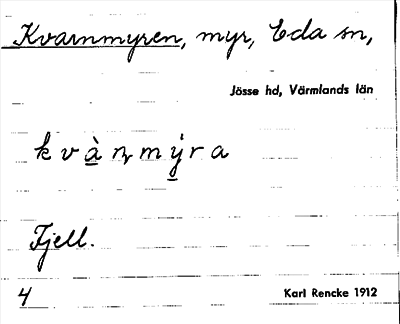 Kvarnmyren, myr, Eda sn,
Jösse hd, Värmlands län
kvàn̥mỳra
Fjell.
4
Karl Rencke 1912